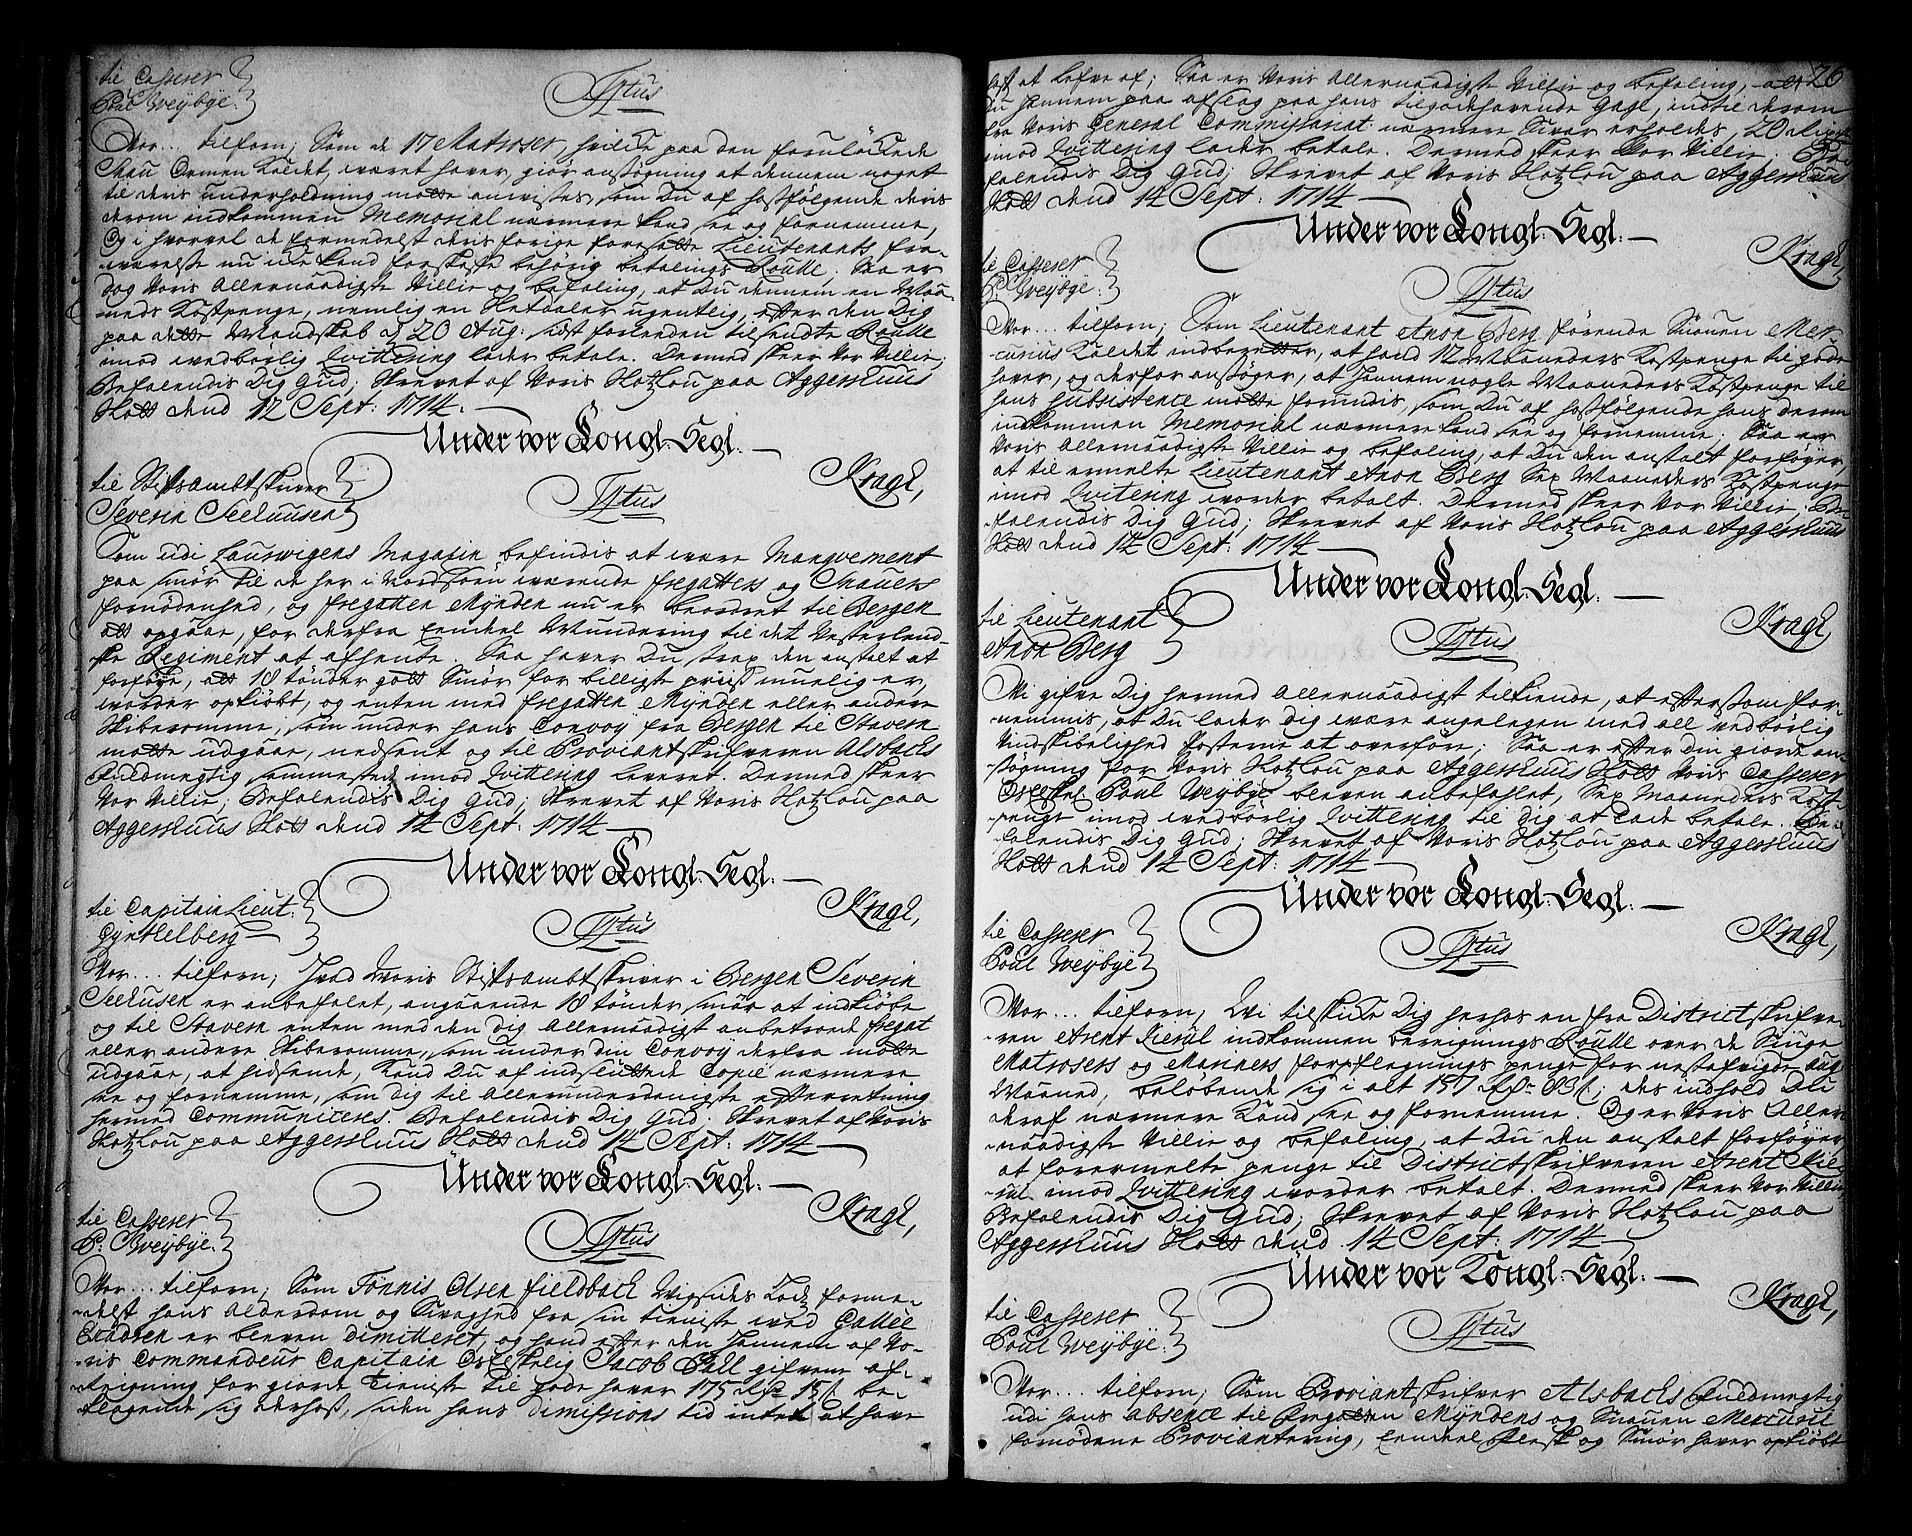 til Casserer
Poul Weybye.
Titus
Vor... tilforn; Som de 17 Matroser, hvilcke paa den forulöckede
Snau Ormen Kaldet, wæret haver, giör ansögning at dennem noget
til deris underholdning motte anvistes, som Du af hosfölgende deris
derom indkommen Memorial nærmere kand see og fornemme,
Og i hvorvel de formedelst deris forige foresatte Lieutenants fra-
-værelse nu icke kand forskaffe behörig betalings Roulle. Saa er
dog Voris Allernaadigste Villie og befaling, at Du dennem en Maa-
neds Kostpenge, nemlig en Hetdaler ugentlig, efter den Dig
paa dette Mandskab d: 20 Aug: sidst forenden tilsendte Roulle
imod wedbörlig Qvittering lader betale. Dermed skeer Vor Villie;
Befalendis Dig Gud; Skrevet af Voris Slotzlou paa Aggershuus
Slott dend 12 Sept: 1714.
Under vor Kongl: Segl.
Kragh,
til Stiftsambtskriver
Severin Seehuusen
Titus
Som udi Laurwigens Magasin befindis at være Manqvement
paa smör til de her i Nordsöen værende fregatters og Snauers
fornödenhed, og fregatten Mynden nu er beordret til Bergen
att opgaae, for derfra Eendeel Mundering til det Vesterlend-
-ske Regiment at afhente. Saa haver Du strax den anstalt at
forföye, att 18 tönder gott Smör for billigste priiss muelig er,
worder opkiöbt, og enten med fregatten Mynden eller andre
Skiberomme, som under hans Convoy fra Bergen til Stavern
motte udgaae, nedsent og til Proviantskrifveren Alsbachs
fuldmegtig sammested imod Qvittering leveret. Dermed skeer
Vor Villie; Befalendis Dig Gud; Skrevet af Voris Slotzlou paa
Aggershuus Slott dend 14 Sept: 1714
Under vor Kongl: Segl.
Kragh,
til Capitain Lieut:
Gyntelberg
Titus
Vor... tilforn; Hvad Voris Stiftsambtskriver i Bergen Severin
Seehusen er anbefalet, angaaende 18 tönder smör at indkiöbe
og til Stavern enten med den dig allernaadigst anbetroede fregat
eller andre Skiberomme, som under din Convoy derfra motte
udgaae, at hidsende, kand Du af indsluttede Copie nærmere
see og fornemme, som dig til allerunderdanigste efterretning
hermed Communiceres. Befalendis Dig Gud; Skrevet af Voris
Slotzlou paa Aggershuus Slott dend 14 Sept: 1714
Under vor Kongl: Segl.
Kragh,
til Casserer
P: Weybye.
Titus
Vor... tilforn; Som Tönnis Olsen fieldback formé-
-delst hans Alderdom og Svaghed fra sin tieniste ved Gallée
Esqadren er bleven dimitteret, og hand efter den hannem af Vo-
-ris Commandeur Capitain Jacob Pall gifvene af-
-reigning for giorde tieniste til gode haver 175 Rdr 15 s: be-
-klagende sig derhos, siden hans dimissions tid intet at have
26
lest at lefve af; Saa er Voris Allernaadigste Villie og befaling, att
Du hannem paa afslag paa hans tilgodehavende Gage, indtil derom
fra Voris General Commissariat nærmere Svar erholdes, 20 Rixdr
imod Qvittering lader betale. Dermed skeer Vor Villie; Be-
falendis Dig Gud; Skrevet af Voris Slotzlou paa Aggershuus
Slott dend 14 Sept: 1714
Under vor Kongl: Segl.
Kragh,
til Casserer
P: Weybye.
Titus
Vor... tilforn; Som Lieutenant Aron Berg förende Snauen Mer-
curius Kaldet indberetter, at hand 12 Maaneders Kostpenge til gode
haver, og derfor ansöger, at hannem nogle Maaneders Kostpenge til
hans Subsistence motte forundis, som Du af hosfölgende hans derom
indkommen Memorial nærmere kand see og fornemme; Saa er
Voris Allernaadigste Villie og befaling, at Du den anstalt forföyer,
at til ermelte Lieutenant Aron Berg Sex Maaneders Kostpenge
imod Qvittering worder betalt. Dermed skeer Vor Villie. Be-
-falendis Dig Gud; Skrevet af Voris Slotzlou paa Aggershuus
Slott dend 14 Sept: 1714
Under vor Kongl: Segl.
Kragh,
til Lieutenant
Aron Berg
Titus
Vi gifve Dig hermed Allernaadigst tilkiende, at eftersom for-
-nemmis, at Du lader dig være angelegen med all vedbörlig
Vindskibelighed Posterne at overföre; Saa er efter Din giorde an-
-sögning for Voris Slotzlou paa Aggershuus Slott Voris Casserer
Poul Weybye bleven anbefalet, Sex Maaneders Kost-
-penge imod wedbörlig Qvittering til Dig at lade betale. Be-
-falendis Dig Gud; Skrevet af Voris Slotzlou paa Aggershuus
Slott dend 14 Sept: 1714
Under vor Kongl: Segl.
Kragh,
til Casserer
Poul Weybye
Titus
Vor... tilforn; Vi tilskicke Dig herhos en fra Districtskrifve-
ren Arent Kierul indkommen bereignings Roulle over de Siuge
Matrosers og Mariners forpflegnings penge for nestafvigte Aug:
Maaned, belöbende sig i alt 157 Rdr 83 s; des indhold Du
deraf nærmere kand see og fornemme. Og er Voris Aller-
-naadigste Villie og befaling, at Du den anstalt forföyer
at forermelte penge til Districtskrifveren Arent Kie-
-rul imod Qvittering worder betalt. Dermed skeer Vor Villie
Befalendis Dig Gud; Skrevet af Voris Slotzlou paa
Aggershuus Slott dend 14 Sept: 1714
Under vor Kongl: Segl.
Kragh,
til Casserer
Poul Weybye.
Titus
Vor... tilforn; Som Proviantskrifver Alsbachs fuldmegtig
udi hans absence til fregatten Myndens og Snauen Mercurii
fornödene Proviantering, Eendeel flesk og Smör haver opkiöbt